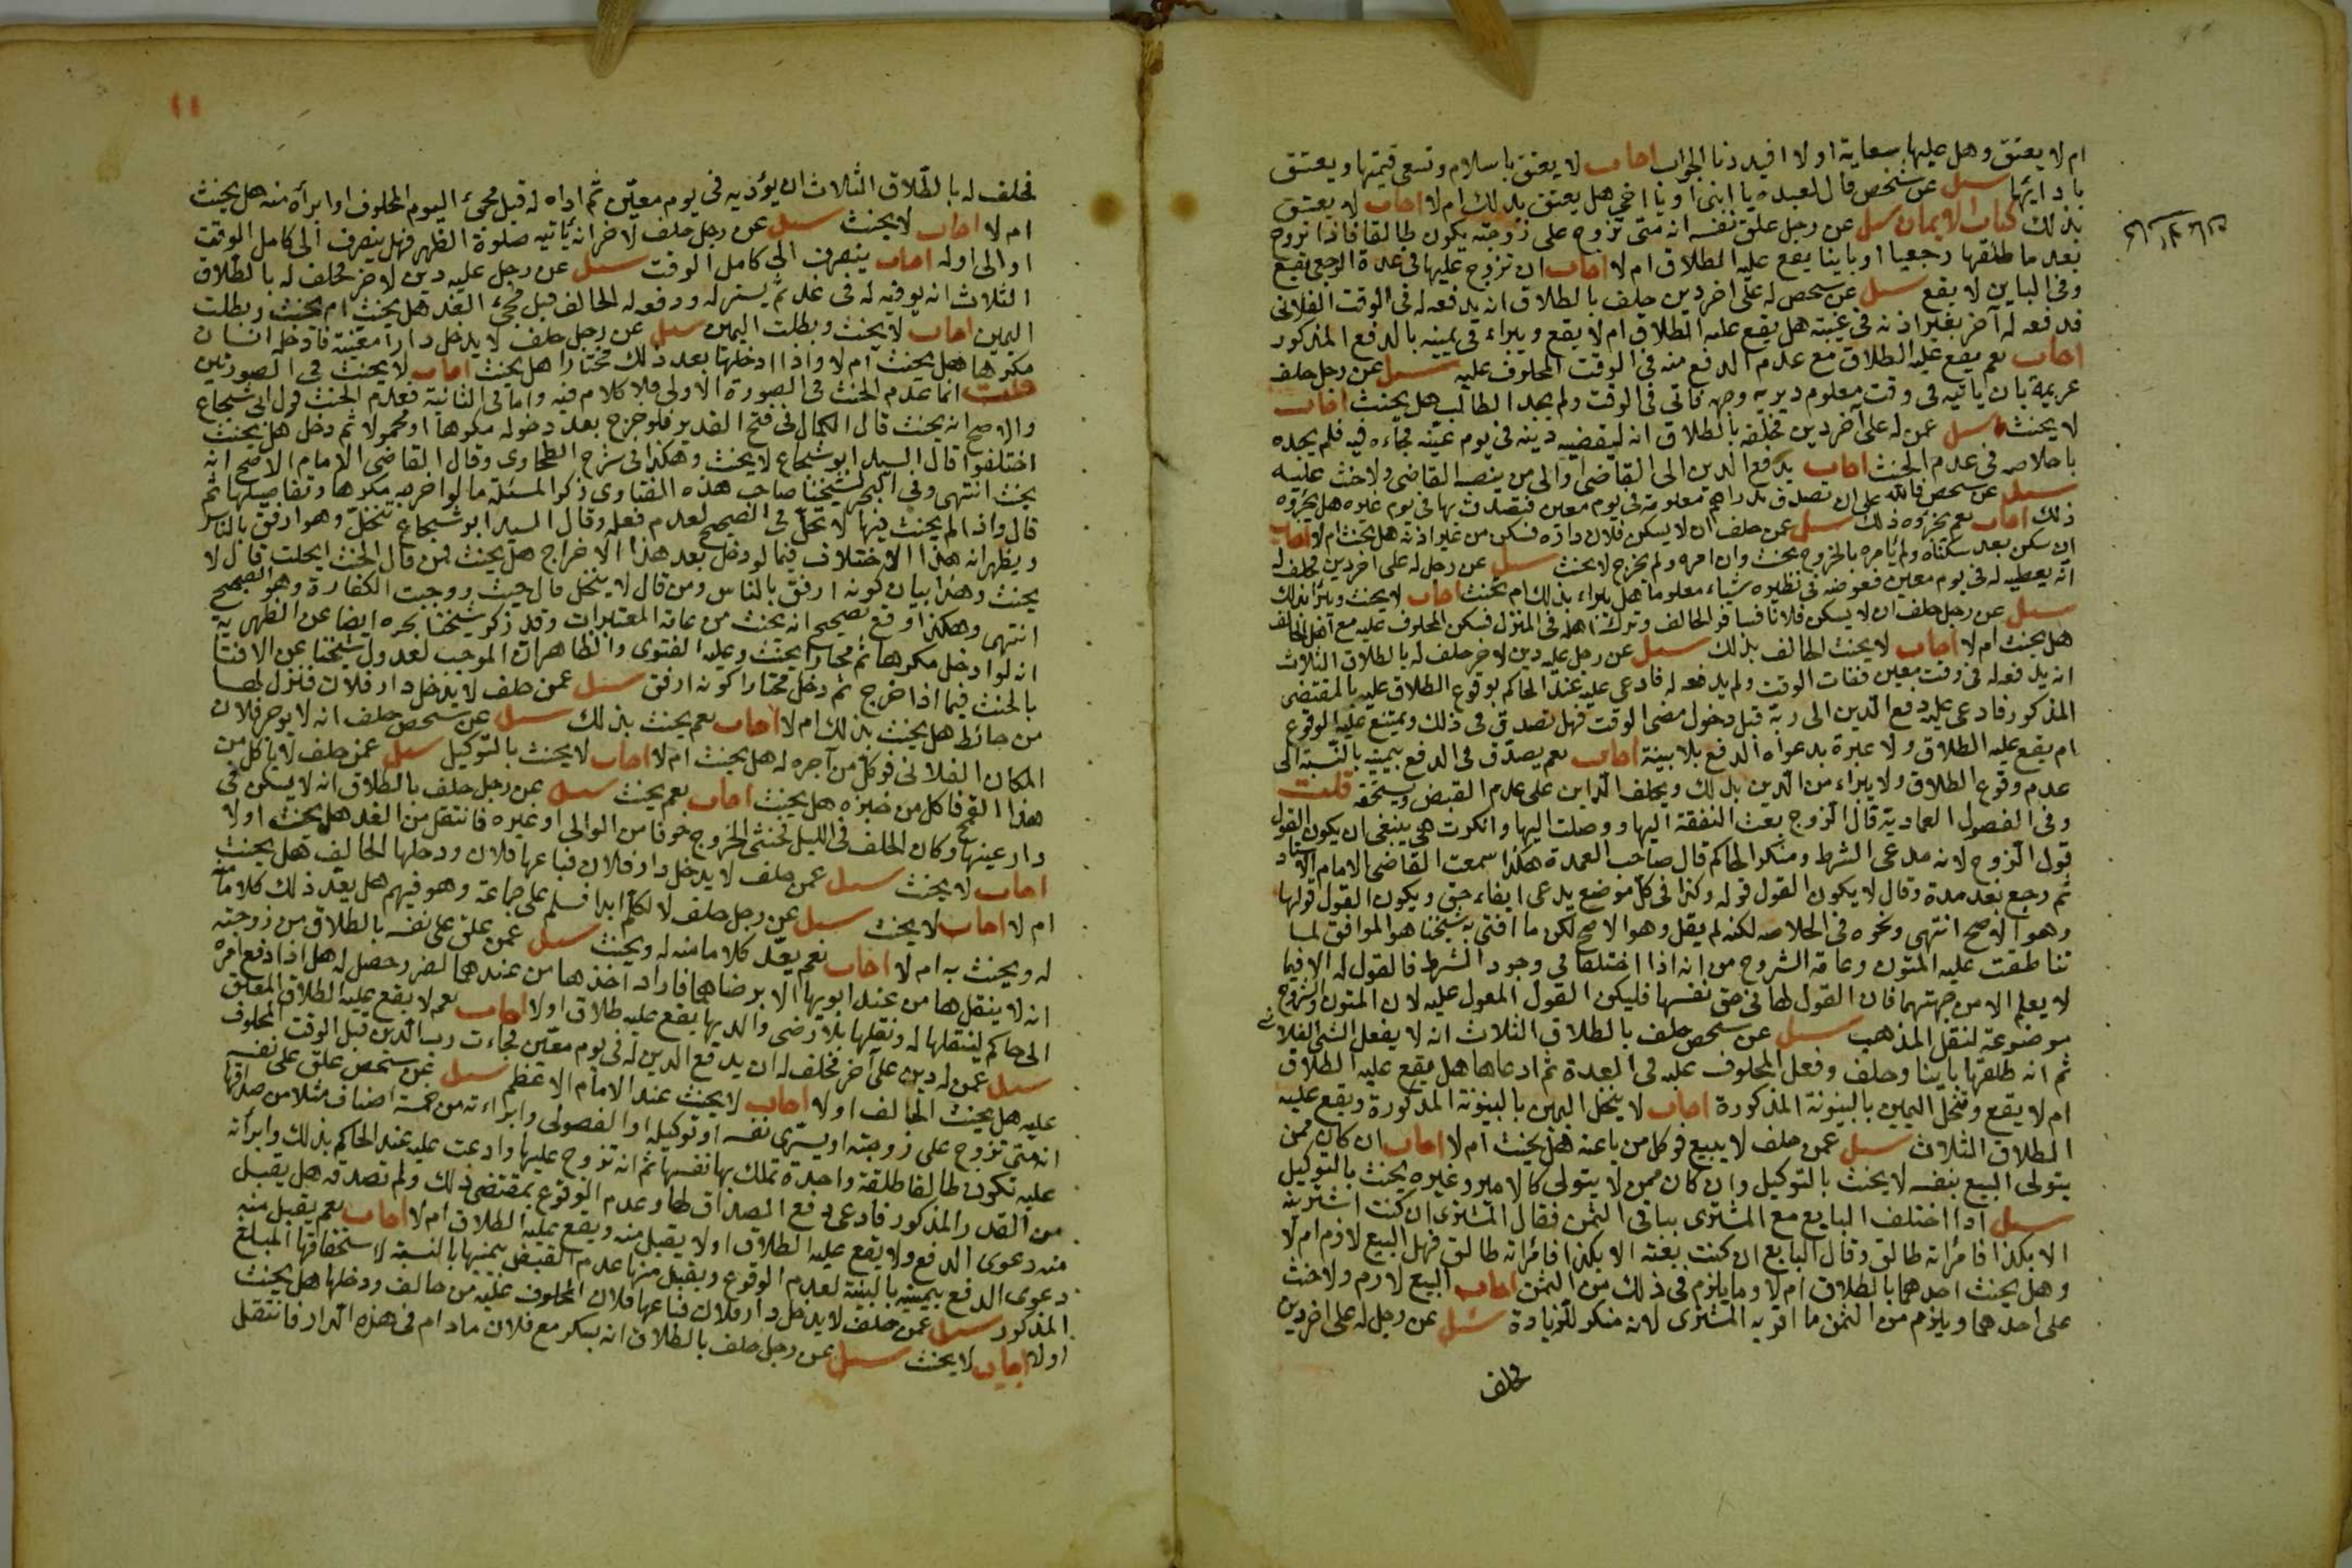 ام لا يعتق وهل عليها سعاية او لا افيدونا الجواب اجاب لا يعتق باسلام وتسعى قيمتها ويعتق
بادائها سئل عن شخص قال لعبده يا ابنى او يا اخى هل يعتق بذلك ام لا اجاب لا يعتق
بذلك كتاب الايمان سئل عن رجل علق نفسه انه متى تزوج على زوجته يكون طالقا فاذا تزوج
كتاب الايمان
بعد ما طلقها رجعيا او باينا يقع عليه الطلاق ام لا اجاب ان تزوج عليها فى عدة الرجعى يقع
وفى الباين لا يقع سئل عن شخص له على اخر دين حلف بالطلاق انه يدفعه له فى الوقت الفلانى
فدفعه له آخر بغير اذنه فى غيبته هل يقع عليه الطلاق ام لا يقع ويبراء فى يمينه بالدفع المذكور
اجاب نعم يقع عليه الطلاق مع عدم الدفع منه فى الوقت المحلوف عليه سئل عن رجل حلف
غريمه بان ياتيه فى وقت معلوم فاتى فى الوقت ولم يجد الطالب هل يحنث اجاب
لا يحنث سئل عمن له على آخر دين فحلفه بالطلاق انه ليقضيه دينه فى يوم عينه فجاءه فيه فلم يجده
فى عدم الحنث اجاب يدفع الدين الى القاضى او الى من ينصبه القاضى ولا حنث عليه
سئل عن شخص على ان تصدق بدراهم معلومة فى يوم معين فتصدق بها فى يوم غيره هل يجزوه
ذلك اجاب نعم يجزوه ذلك سئل عمن حلف ان لا يسكن فلان داره فسكن من غير اذنه هل يحنث ام لا اجاب
ان سكن بعد سكناه ولم يامره بالخروج يحنث وان امره ولم يخرج لا يحنث سئل عن رجل له على اخر دين فحلف له
انه يعطيه له فى يوم معين فعوضه فى نظيره شياء معلوما هل يبراء بذلك ام يحنث اجاب لا يحنث ويبرأ بذلك
سئل عن رجل حلف ان لا يسكن فلانا فسافر الحالف وترك اهله فى المنزل فسكن المحلوف عليه مع اهل الحالف
هل يحنث ام لا اجاب لا يحنث الحالف بذلك سئل عن رجل عليه دين لاخر حلف له بالطلاق الثلاث
انه يدفعه له فى وقت معين ففات الوقت ولم يدفعه له فادعى عليه عند الحاكم بوقوع الطلاق عليه بالمقتضى
المذكور فادعى عليه دفع الدين الى ربه قبل دخول مضى الوقت فهل تصدق فى ذلك ويمتنع عليه الوقوع
ام يقع عليه الطلاق ولا عبرة بدعواه الدفع بلا بينة اجاب نعم يصدق فى الدفع بيمينه بالنسبة الى
عدم وقوع الطلاق ولا يبراء من الدين بذلك ويحلف الداين على عدم القبض ويستحقه قلت
وفى الفصول العمادية قال الزوج بعث النفقة اليها ووصلت اليها وانكرت هى ينبغى ان يكون القول
قول الزوج لانه مدعى الشرط ومنكر الحاكم قال صاحب العمدة هكذا سمعت القاضى الامام الاستاد
ثم رجع بعد مدة وقال لا يكون القول قوله وكذا فى كل موضع يدعى ايفاء حق ويكون القول قولها
وهو الاصح انتهى ونحوه فى الخلاصه لكنه لم يقل وهو الاصح لكن ما افتى به شيخنا هو الموافق لما
تناطقت عليه المتون وعامة الشروح من انه اذا اختلفا فى وجود الشرط فالقول له الا فيما
لا يعلم الا من جهتها فان القول لها فى حق نفسها فليكن القول المعول عليه لان المتون والشروح
موضوعة لنقل المذهب سئل عن شخص حلف بالطلاق الثلاث انه لا يفعل الشى الفلانى
ثم انه طلقها باينا وحلف وفعل المحلوف عليه فى العدة ثم ادعاها هل يقع عليه الطلاق
ام لا يقع وتنحل اليمين بالبينونة المذكورة اجاب لا ينحل اليمين بالبينونة المذكورة ويقع عليه
الطلاق الثلاث سئل عمن حلف لا يبيع فوكل من باعه هل يحنث ام لا اجاب ان كان ممن
يتولى البيع بنفسه لا يحنث بالتوكيل وان كان ممن لا يتولى كالامير وغيره يحنث بالتوكيل
سئل اذا اختلف البايع مع المشترى بباقى الثمن فقال المشترى ان كنت اشتريته
الا بكذا فامراته طالق وقال البايع ان كنت بعته الا بكذا فامراته طالق فهل البيع لازم ام لا
وهل يحنث احدهما بالطلاق ام لا وما يلزم فى ذلك من الثمن اجاب البيع لازم ولا حنث
على احدهما ويلزم من الثمن ما اقر به المشترى لانه منكر للزيادة سئل عن رجل له على اخر دين
فحلف
١١
فحلف له بالطلاق الثلاث ان يؤديه فى يوم معين ثم اداه له قبل مجئ اليوم المحلوف او ابرأه منه هل يحنث
ام لا اجاب لا يحنث سئل عن رجل حلف لاخر انه ياتيه صلوة الظهر فهل ينصرف الى كامل الوقت
او الى اوله اجاب ينصرف الى كامل الوقت سئل عن رجل عليه دين لاخر فحلف له بالطلاق
الثلاث انه يوفيه له فى غد ثم يسر له ودفعه له الحالف قبل مجئ الغد هل يحنث ام يحنث وبطلت
اليمين اجاب لا يحنث وبطلت اليمين سئل عن رجل حلف لا يدخل دارا معينة فادخله انسان
مكرها هل يحنث ام لا واذا ادخلها بعد ذلك مختارا هل يحنث اجاب لا يحنث فى الصورتين
قلت انما عدم الحنث فى الصورة الاولى فلا كلام فيه واما فى الثانية فعدم الحنث قول ابى شجاع
والاصح انه يحنث قال الكمال فى فتح القدير فلو خرج بعد دخوله مكرها او محمولا ثم دخل هل يحنث
اختلفوا قال السيد ابو شجاع لا يحنث وهكذا فى شرح الطحاوى وقال القاضى الامام الاصح انه
يحنث انتهى وفى البحر لشيخنا صاحب هذه الفتاوى ذكر المسئلة ما لو اخرجه مكرها وتفاصيلها ثم
قال واذا لم يحنث فيها لا تنحل فى الصحيح لعدم فعله وقال السيد ابو شجاع تنحل وهو ارفق بالناس
ويظهر انه هذا الاختلاف فيما لو دخل بعد هذا الاخراج هل يحنث فمن قال الحنث انحلت قال لا
يحنث وهذا بيان كونه ارفق بالناس ومن قال لا ينحل قال حنث ووجبت الكفارة وهو الصحيح
انتهى وهكذا وقع تصحيح انه يحنث من عامة المعتبرات وقد ذكر شيخنا بحره ايضا عن الظهيرية
انه لو ادخل مكرها ثم مختارا يحنث وعليه الفتوى والظاهر ان الموجب لعدول شيخنا عن الافتا
بالحنث فيما اذا خرج ثم دخل مختارا كونه ارفق سئل عمن حلف لا يدخل دار فلان فنزل لها
من حائط هل يحنث بذلك ام لا اجاب نعم يحنث بذلك سئل عن شخص حلف انه لا يوجر فلان
المكان الفلانى فوكل من آجره له هل يحنث ام لا اجاب لا يحنث بالتوكيل سئل عمن حلف لا ياكل من
هذا القمح فاكل من خبزه هل يحنث اجاب نعم يحنث سئل عن رجل حلف بالطلاق انه لا يسكن فى
دار عينها وكان الحلف فى الليل فخشى الخروج خوفا من الوالى او غيره فانتقل من الغد هل يحنث او لا
اجاب لا يحنث سئل عمن حلف لا يدخل دار فلان فباعها فلان ودخلها الحالف هل يحنث
ام لا اجاب لا يحنث سئل عن رجل حلف لا يكلم ابدا فسلم على جماعة وهو فيهم هل يعد ذلك كلاما
له ويحنث به ام لا اجاب نعم يعد كلاما منه له ويحنث سئل عمن علق على نفسه بالطلاق من زوجته
انه لا ينقلها من عند ابويها الا برضاهما فاراد اخذها من عندهما لضرر حصل له هل اذا دفع امره
الى حاكم لينقلها له ونقلها بلا رضى والديها يقع عليه طلاق او لا اجاب نعم لا يقع عليه الطلاق المعلق
سئل عمن له دين على آخر فحلف له ان يدفع الدين له فى يوم معين فجاءت رب الدين قبل الوقت المحلوف
عليه هل يحنث الحالف او لا اجاب لا يحنث عند الامام الاعظم سئل عن شخص علق على نفسه
انه متى تزوج على زوجته او يسترى نفسه او توكيله او الفصولى وابراءته من خمسة اصناف مثلا من صداقها
عليه تكون طالقا طلقة واحدة تملك بها نفسها ثم انه تزوج عليها وادعت عليه عند الحاكم بذلك وابرأته
من القدر المذكور فادعى دفع الصداق لها وعدم الوقوع بمقتضى ذلك ولم تصدقه هل يقبل
منه دعوى الدفع ولا يقع عليه الطلاق او لا يقبل منه ويقع عليه الطلاق ام لا اجاب نعم يقبل منه
دعوى الدفع بيمينه بالنسبة لعدم الوقوع ويقبل منها عدم القبض بيمينها بالنسبة لاستحقاقها المبلغ
المذكور سئل عمن حلف لا يدخل دار فلان فباعها فلان المحلوف عليه من حالف ودخلها هل يحنث
او لا اجاب لا يحنث سئل عن رجل حلف بالطلاق انه يسكن مع فلان مادام فى هذه الدار فانتقل